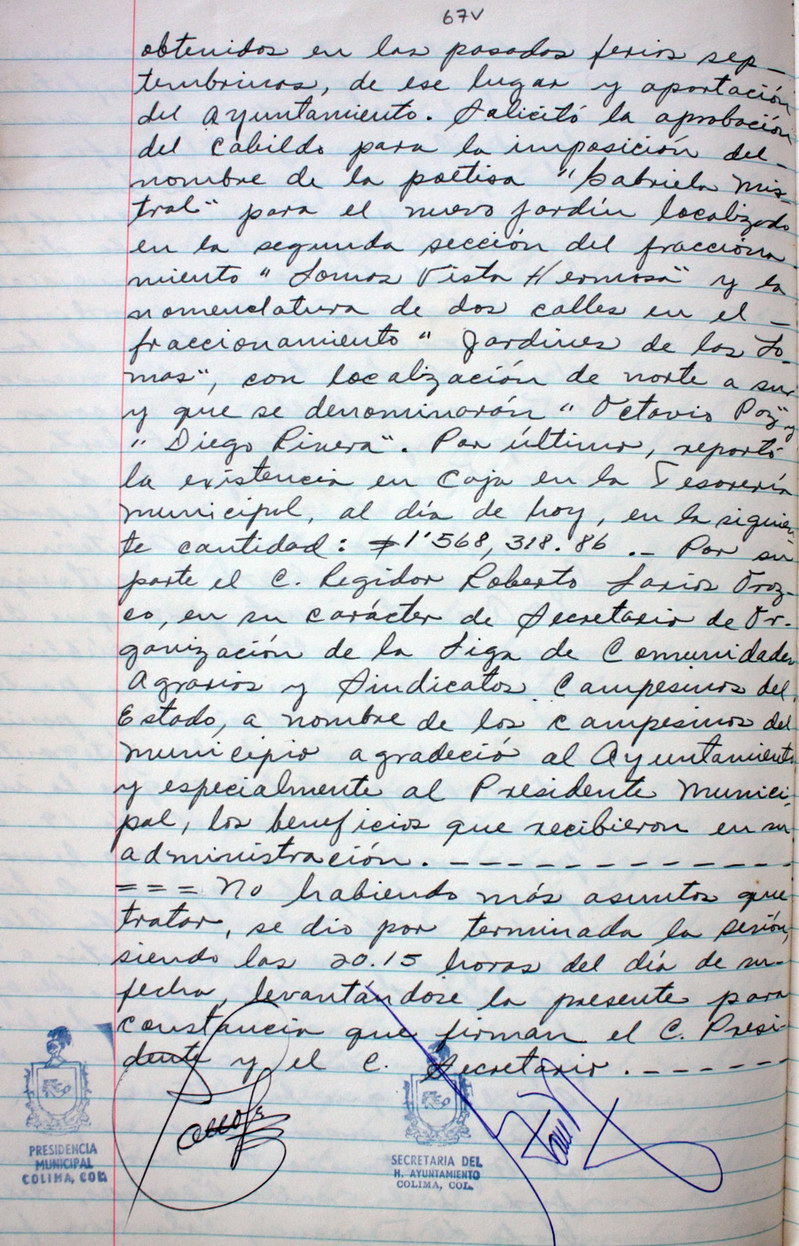 67V
obtenidos en las pasadas ferias sep-
tembrinas, de ese lugar y aportación
del Ayuntamiento. Solicitó la aprobación
del Cabildo para la imposición del-
nombre de la poetisa "Gabriela Mis-
tral" para el nuevo jardín localizado
en la segunda sección del fracciona-
miento "Lomas Vista Hermosa" y la
nomenclatura de dos calles en el -
fraccionamiento "Jardines de las Lo-
mas", con localización de norte a sur
y que se denominarán "Octavio Paz" y
"Diego Rivera". Por último, reportó
la existencia en Caja en la Tesorería
municipal, al día de hoy, en la siguien-
te cantidad: $1'568,318.86 .- Por su
parte el C. Regidor Roberto Larios Oroz-
co, en su carácter de Secretario de Or-
ganización de la Liga de Comunidades
Agrarias y Sindicatos Campesinos del
Estado, a nombre de los campesinos del
municipio agradeció al Ayuntamiento
y especialmente al Presidente Munici-
pal, los beneficios que recibieron en su
administración. - - - - - - - - - - - - -
=== No habiendo más asuntos que
tratar, se dio por terminada la sesión,
siendo las 20.15 horas del día de su-
fecha, levantándose la presente para
constancia que firman el C. Presi-
dente y el C. Secretario. - - - - - -
PRESIDENCIA
MUNICIPAL
COLIMA, COL.
SECRETARIA DEL
H. AYUNTAMIENTO
COLIMA, COL.